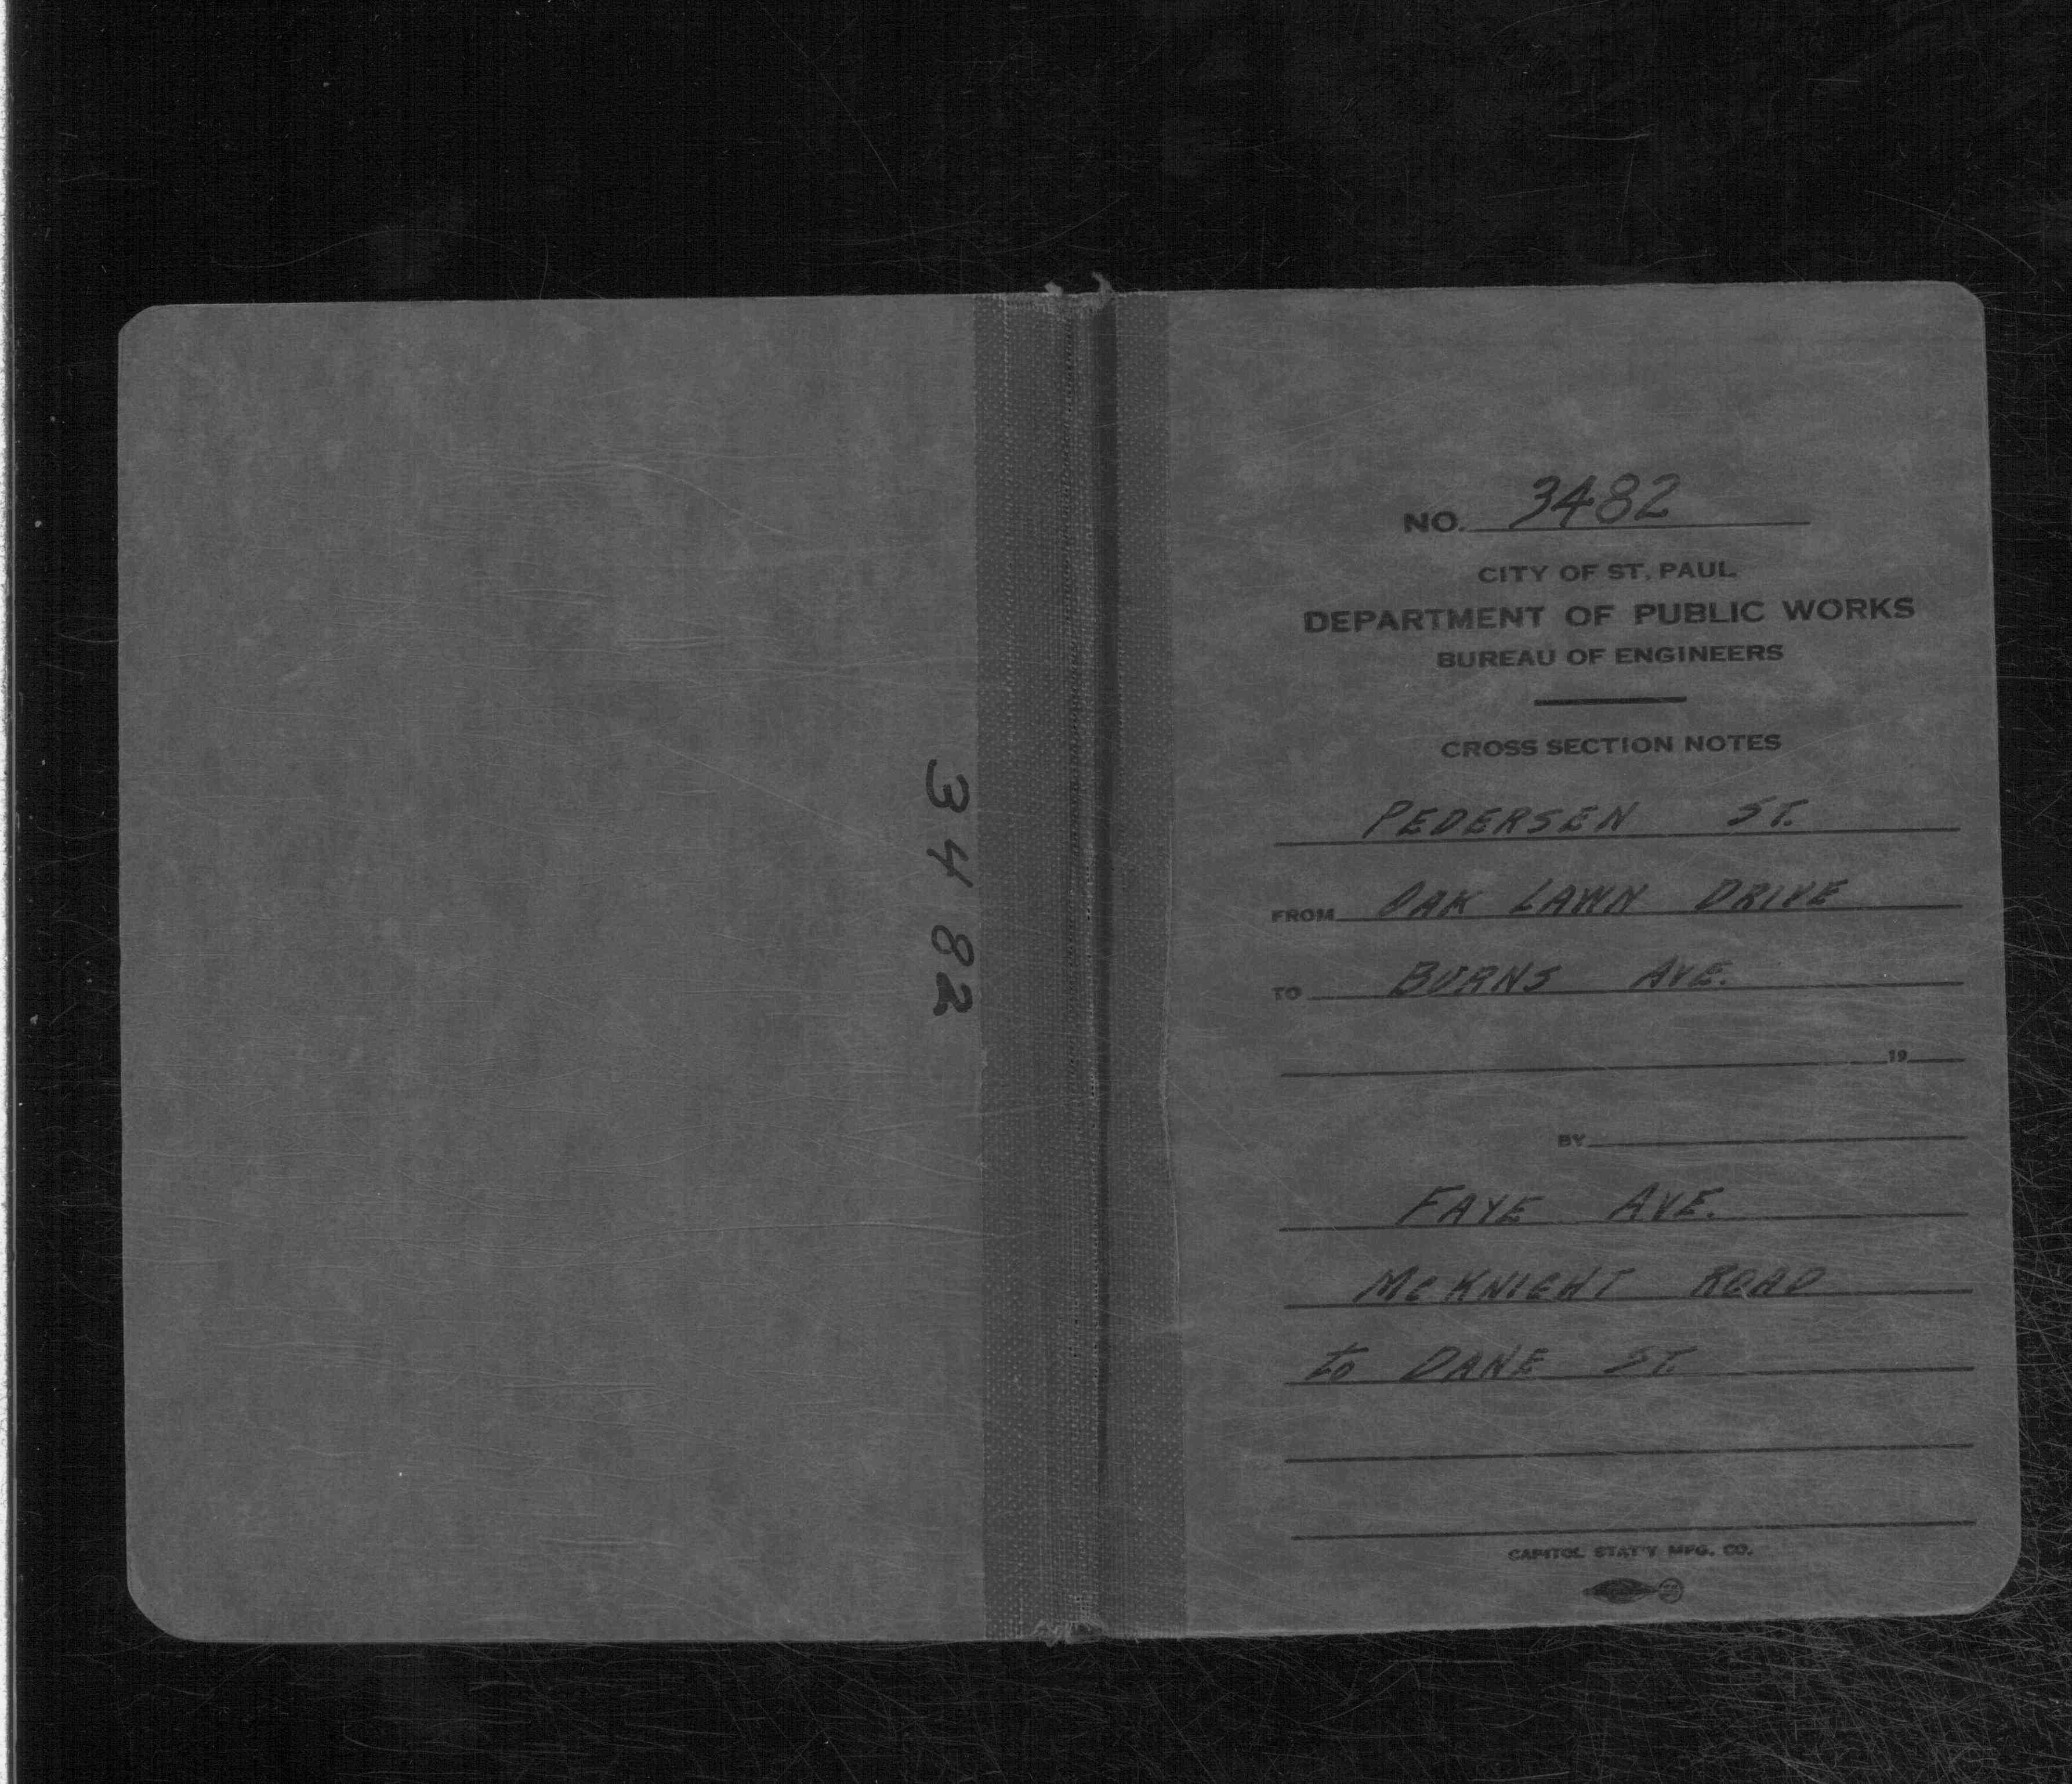 3482
NO. 3482
CITY OF ST. PAUL
DEPARTMENT OF PUBLIC WORKS
BUREAU OF ENGINEERS
CROSS SECTION NOTES
PEDERSEN ST.
FROM OAK LAWN DRIVE
TO BURNS AVE.
19
BY
FAYE AVE.
MCKNIGHT ROAD
to DANE ST.
CAPITOL STAT'Y MFG. CO.